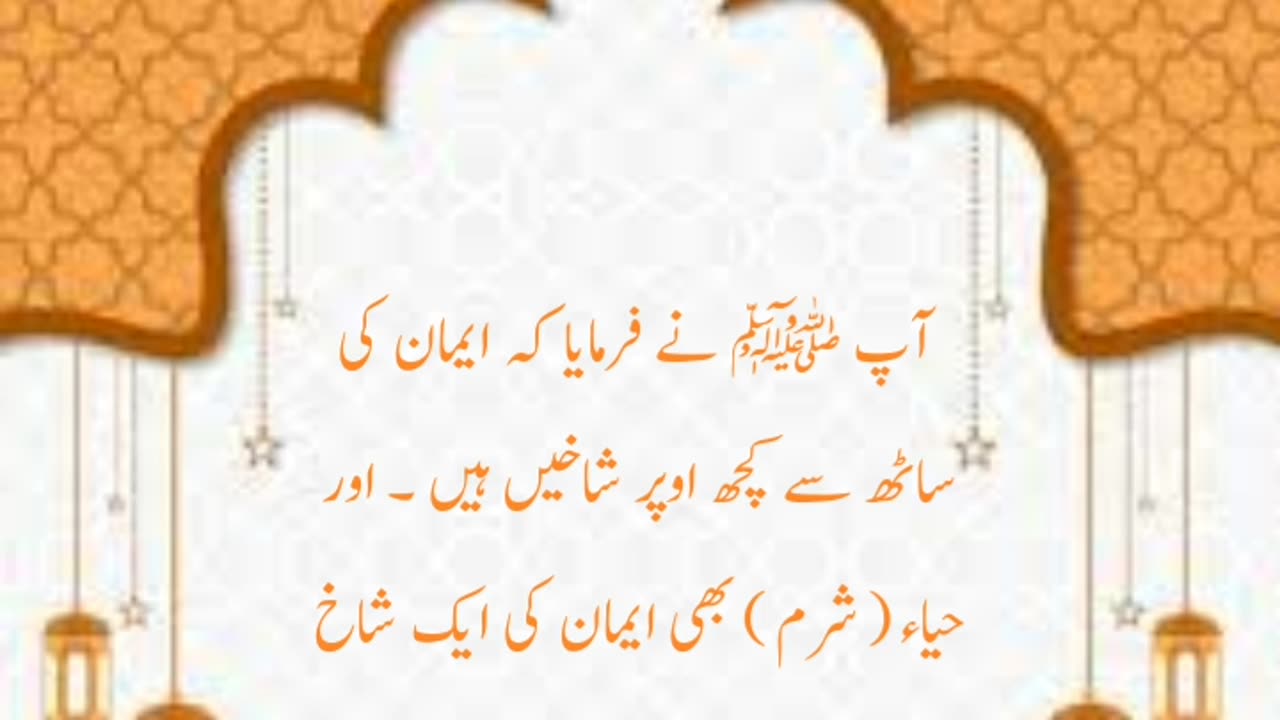 آپ ﷺ نے فرمایا کہ ایمان کی
ساٹھ سے کچھ اوپر شاخیں ہیں ۔ اور
حیاء ( شرم ) بھی ایمان کی ایک شاخ